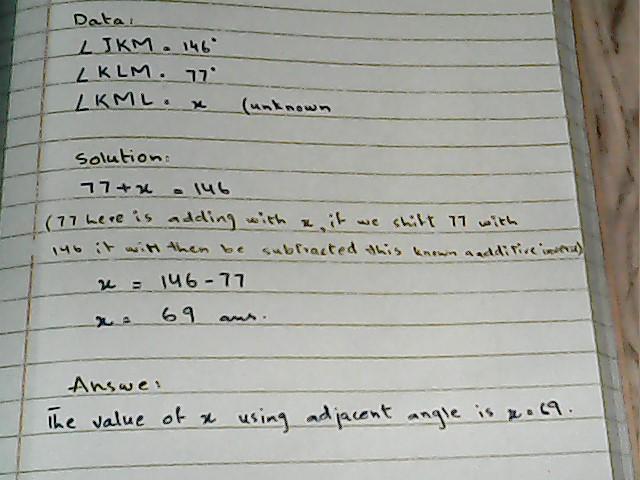 Data:
∠ JKM = 146°
∠ KLM = 77°
∠ KML = x (unknown
Solution:
77 + x = 146
(77 here is adding with x, if we shift 77 with
146 it will then be subtracted this known a additive inverse)
x = 146 - 77
x = 69 ans.
Answe:
The value of x using adjacent angle is x = 69.